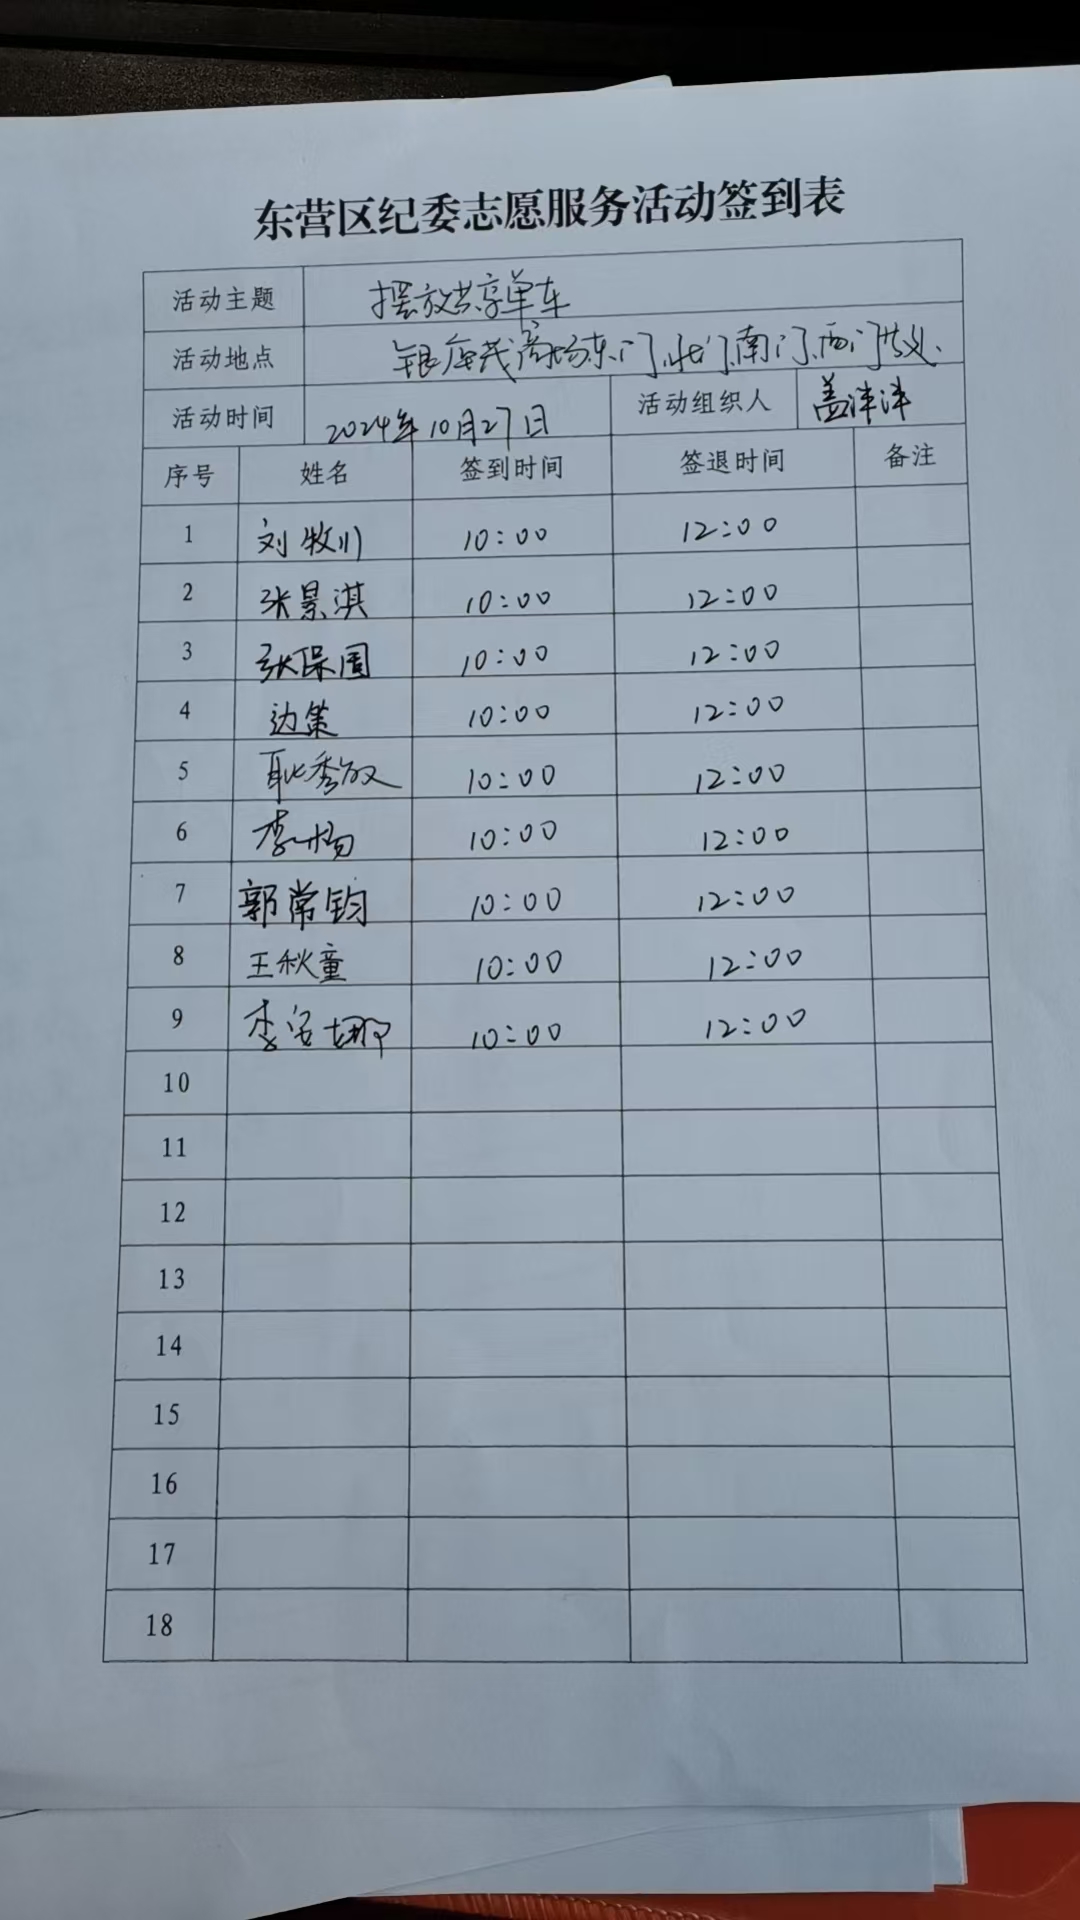 东营区纪委志愿服务活动签到表
活动主题 摆放共享单车
活动地点 银座 商场东门、北门、南门、西门
活动时间 2024年10月27日 活动组织人 盖津津
序号 姓名 签到时间 签退时间 备注
1 刘牧川 10:00 12:00
2 张景淇 10:00 12:00
3 张保国 10:00 12:00
4 边策 10:00 12:00
5 耿秀敏 10:00 12:00
6 李杨 10:00 12:00
7 郭常钧 10:00 12:00
8 王秋童 10:00 12:00
9 李安娜 10:00 12:00
10
11
12
13
14
15
16
17
18